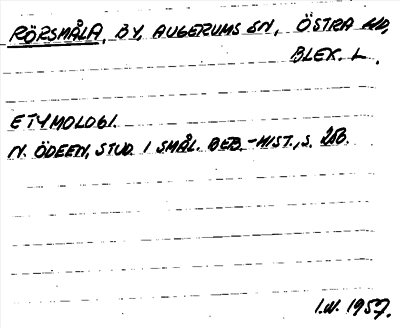 RÖRSMÅLA, BY, AUGERUMS SN, ÖSTRA HD,
BLEK. L.
ETYMOLOGI.
N. ÖDEEN, STUD. I SMÅL. BEB.-HIST., S.
I.N. 1957.